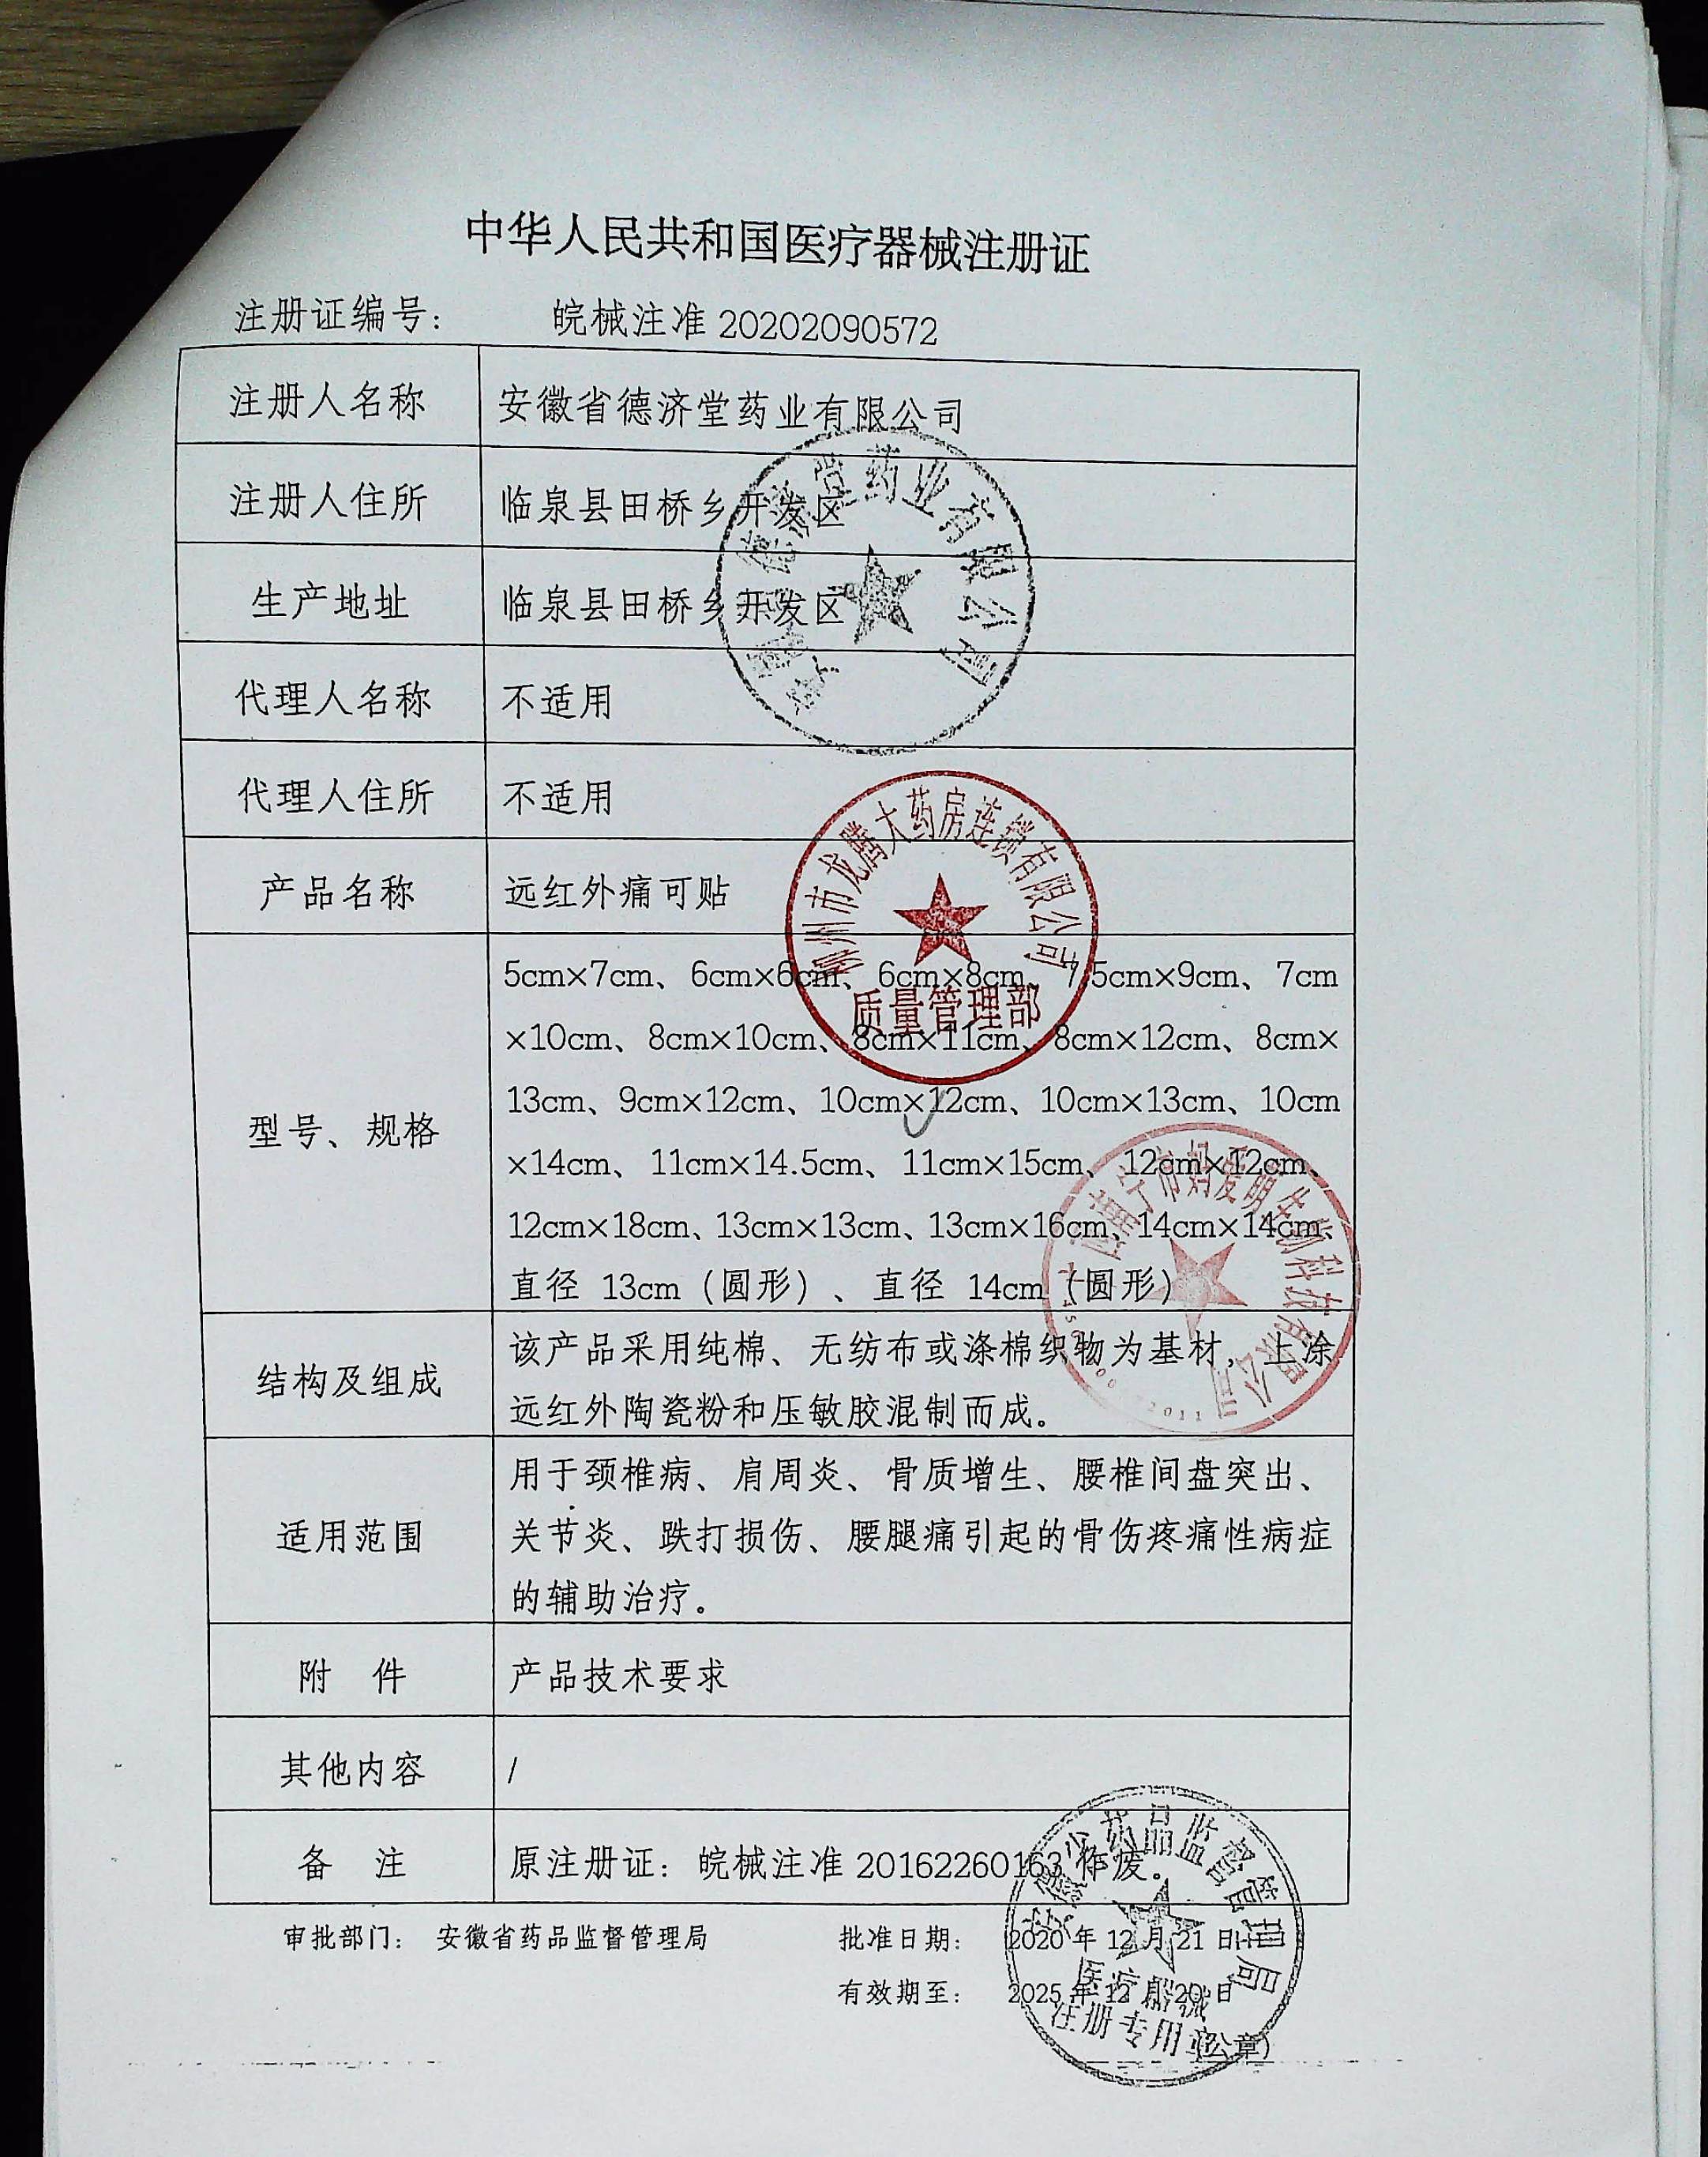 中华人民共和国医疗器械注册证
注册证编号： 皖械注准 20202090572
注册人名称 安徽省德济堂药业有限公司
注册人住所 临泉县田桥乡开发区
生产地址 临泉县田桥乡开发区
代理人名称 不适用
代理人住所 不适用
产品名称 远红外痛可贴
型号、规格
5cm×7cm、6cm×6cm、6cm×8cm、7.5cm×9cm、7cm
×10cm、8cm×10cm、8cm×11cm、8cm×12cm、8cm×
13cm、9cm×12cm、10cm×12cm、10cm×13cm、10cm
×14cm、11cm×14.5cm、11cm×15cm、12cm×12cm、
12cm×18cm、13cm×13cm、13cm×16cm、14cm×14cm、
直径 13cm（圆形）、直径 14cm（圆形）
结构及组成
该产品采用纯棉、无纺布或涤棉织物为基材，上涂
远红外陶瓷粉和压敏胶混制而成。
适用范围
用于颈椎病、肩周炎、骨质增生、腰椎间盘突出、
关节炎、跌打损伤、腰腿痛引起的骨伤疼痛性病症
的辅助治疗。
附 件 产品技术要求
其他内容 /
备 注 原注册证：皖械注准 20162260163 作废。
审批部门： 安徽省药品监督管理局 批准日期： 2020 年 12 月 21 日
有效期至： 2025 年 12 月 20 日
（公章）
德济堂药业有限公司
柳州市龙腾大药房连锁有限公司
质量管理部
安徽省药品监督管理局
医疗器械
注册专用章